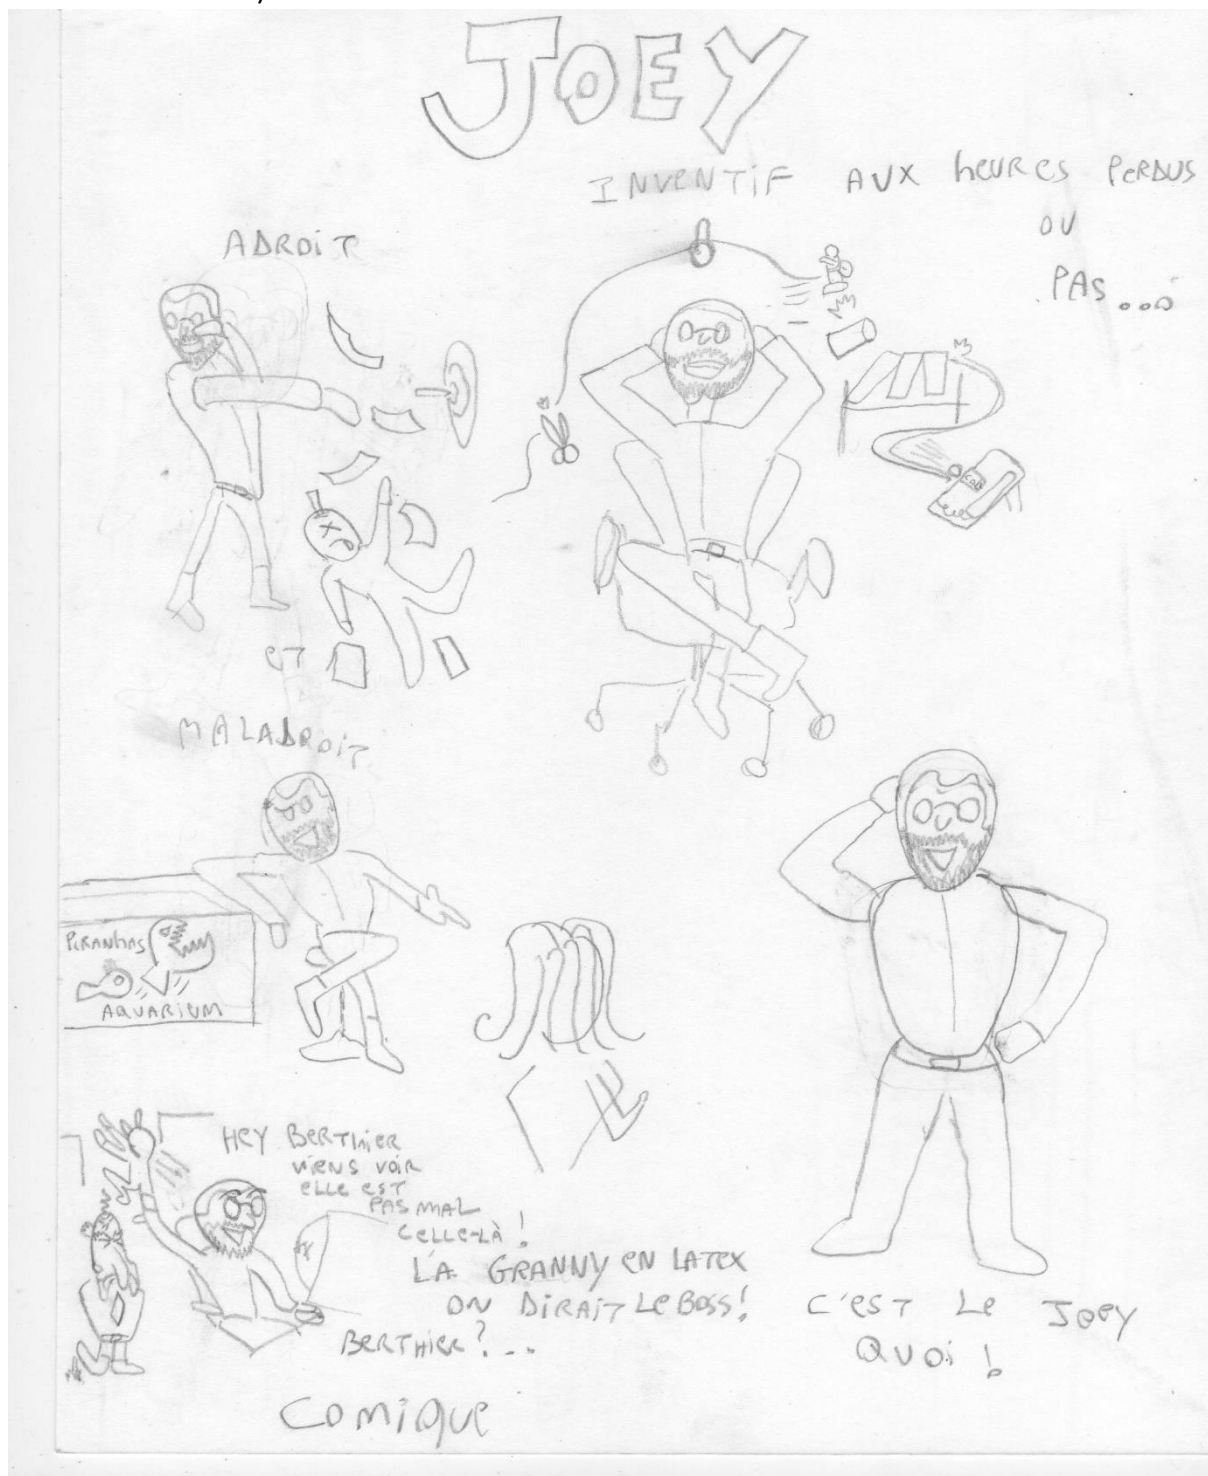 JOEY
INVENTIF AUX heures PERDUS
OU
PAS...
ADROIT
ET
MALADROIT
PIRANHAS
AQUARIUM
HEY BERTHIER
VIENS VOIR
ELLE EST
PAS MAL
CELLE-LÀ !
LA GRANNY EN LATEX
ON DIRAIT LE BOSS!
BERTHIER?...
COMIQUE
C'EST LE JOEY
QUOI !